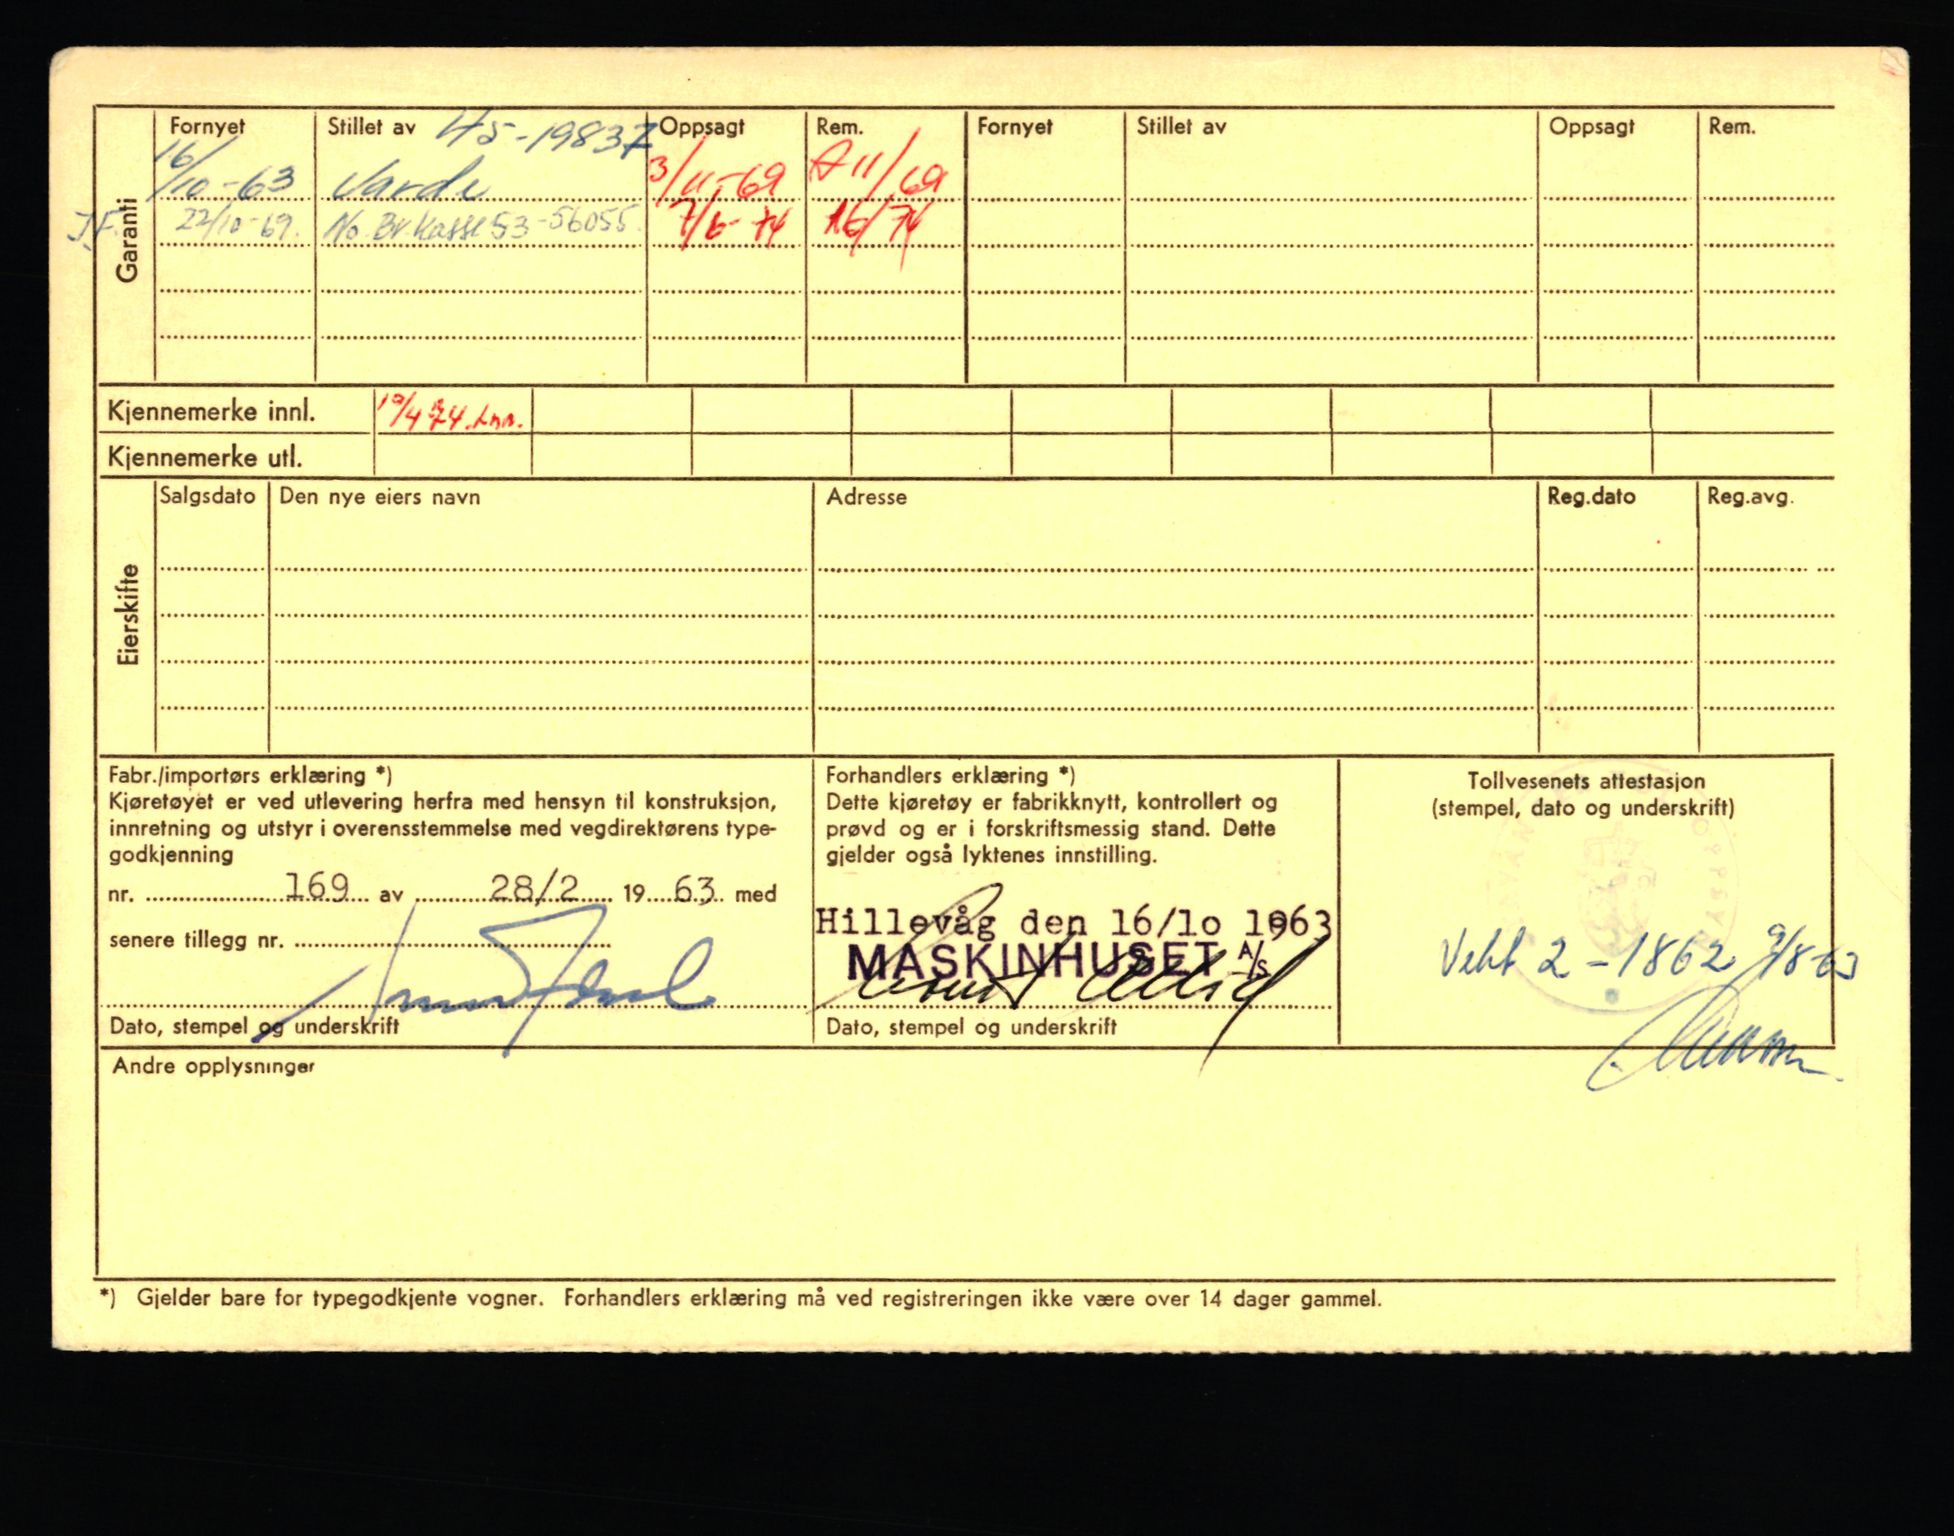 Garanti
Fornyet Stillet av 45-19837 Oppsagt Rem. Fornyet Stillet av Oppsagt Rem.
16/10-63 Varde 3/11-69 A11/69
J.F. 22/10-69. No. Br kasse 53-56055. 7/6-74 A6/74
Kjennemerke innl. 19/4 74.
Kjennemerke utl.
Eierskifte
Salgsdato Den nye eiers navn Adresse Reg.dato Reg.avg.
Fabr./importørs erklæring *)
Kjøretøyet er ved utlevering herfra med hensyn til konstruksjon,
innretning og utstyr i overensstemmelse med vegdirektørens type-
godkjenning
nr. 169 av 28/2 19 63 med
senere tillegg nr.
Dato, stempel og underskrift
Forhandlers erklæring *)
Dette kjøretøy er fabrikknytt, kontrollert og
prøvd og er i forskriftsmessig stand. Dette
gjelder også lyktenes innstilling.
Hillevåg den 16/10 1963
MASKINHUSET A/S
Dato, stempel og underskrift
Tollvesenets attestasjon
(stempel, dato og underskrift)
Vekt 2-1862 9/8-63
Andre opplysninger
*) Gjelder bare for typegodkjente vogner. Forhandlers erklæring må ved registreringen ikke være over 14 dager gammel.